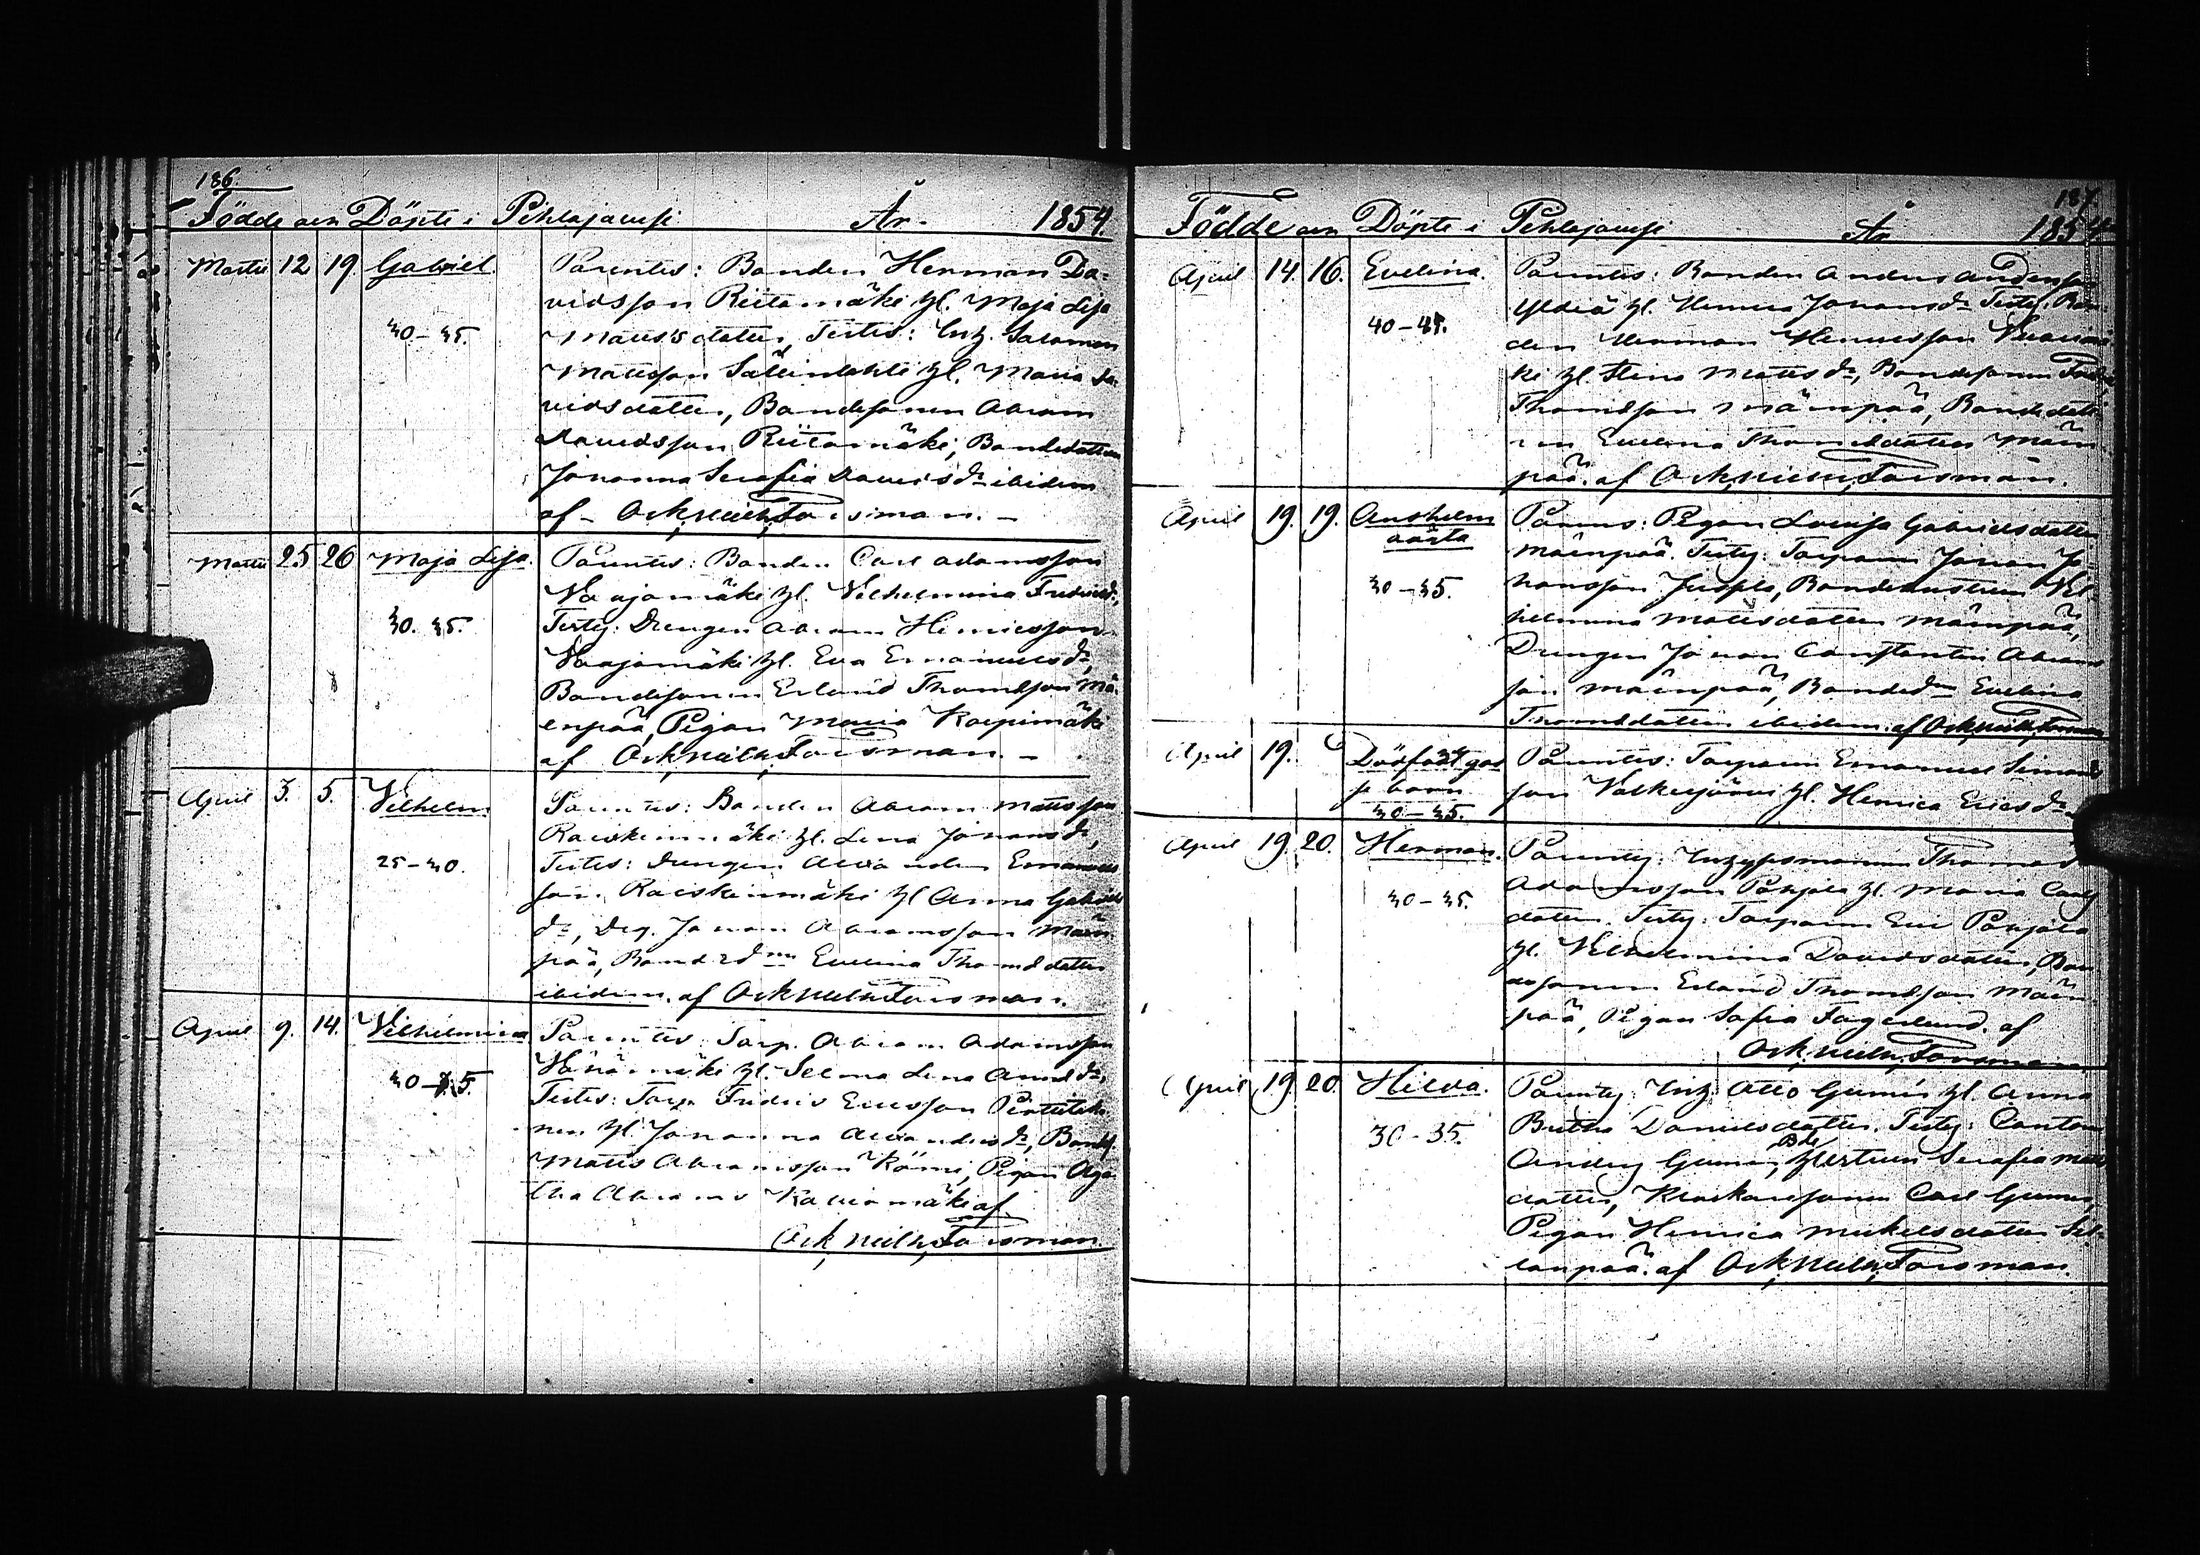 186.
Födde och Döpte i Pihlajavesi År 1854.
Martii 12 19 Gabriel.
30-35.
Parentes: Bonden Herman Da-
vidsson Riitamäki hl. Maja Lisa
Mattsdotter, Testes: Inh. Salomon
Mattsson hl. Maria Da-
vidsdotter, Bondesonen Abram
Davidsson Riitamäki, Bondedottren
Johanna Serafia Davidsdr ibidem
af Forsman.
Martii 25 26 Maja Lisa.
30. 35.
Parentes: Bonden Carl Adamsson
Vaajamäki hl. Vilhelmina Fredricsdr,
Testes: Drengen Abram Henricsson
Vaajamäki hl. Eva Emanuelsdr,
Bondesonen Erland Thomasson Mä-
enpää, Pigan Maria Korpimäki
af Forsman.
April 3. 5. Vilhelm
25-40.
Parentes: Bonden Abram Mattsson
Raiskinmäki hl. Lena Johansdr,
Testes: Drengen Alexander Emanuels
son Raiskinmäki hl Anna Gabriels
dr, Drg. Johan Abramsson Mäen
pää, Evelina Thomasdotter
ibidem. af Forsman.
April 9. 14. Vilhelmina
30-35.
Parentes: Torp. Abram Adamsson
hl. Selma Lena
Testes: Torp. Fredric Ericsson
nen hl. Johanna Alexandersdr,
Matts Abramsson Römi, Pigan Aga
tha Abrams Kaviomäki af
Forsman.
187.
Födde och Döpte i Pihlajavesi År 1854
April 14. 16. Evelina.
Parentes: Bonden Anders Andersson
hl. Henrica Johansdr Testes: Bon
den Herman Henricsson
ki hl. Stina Mattsdr, Bondesonen
Thomasson Mäenpää, Bondedott
ren Evelina Thomasdotter Mäen
pää. af Forsman.
April 19. 19. Anshelm
oäkta
30-35.
Parens: Pigan Lovisa Gabrielsdotter
Mäenpää. Testes: Torparen Johan Jo-
hansson Bondehustrun Vil-
helmina Mattsdotter Mäenpää,
Drengen Johan Constantin Abrams
son Mäenpää, Evelina
Thomasdotter ibidem. af Forsman
April 19. Dödfödt gos
se barn
30-35.
Parentes: Torparen Emanuel Simons
son Valkeajärvi hl. Henrica Ericsdr
April 19. 20. Herman.
30-35.
Parentes: Inhysesmannen Thomas
Adamsson Pohjola hl. Maria Carls
dotter. Testes: Torparen Eric Pohjola
hl. Vilhelmina Davidsdotter, Bon
desonen Erland Thomasson Mäen
pää, Pigan Sofia Fagerlund. af
Forsman.
April 19. 20. Hilda.
30-35.
Parentes: Inh. Otto Gumin hl. Anna
Britha Danielsdotter. Testes:
Anders Gumin, Hustrun Serafia Matts
dotter, Klockaresonen Carl Gumin,
Pigan Henrica Mickelsdotter Sil-
lanpää. af Forsman.